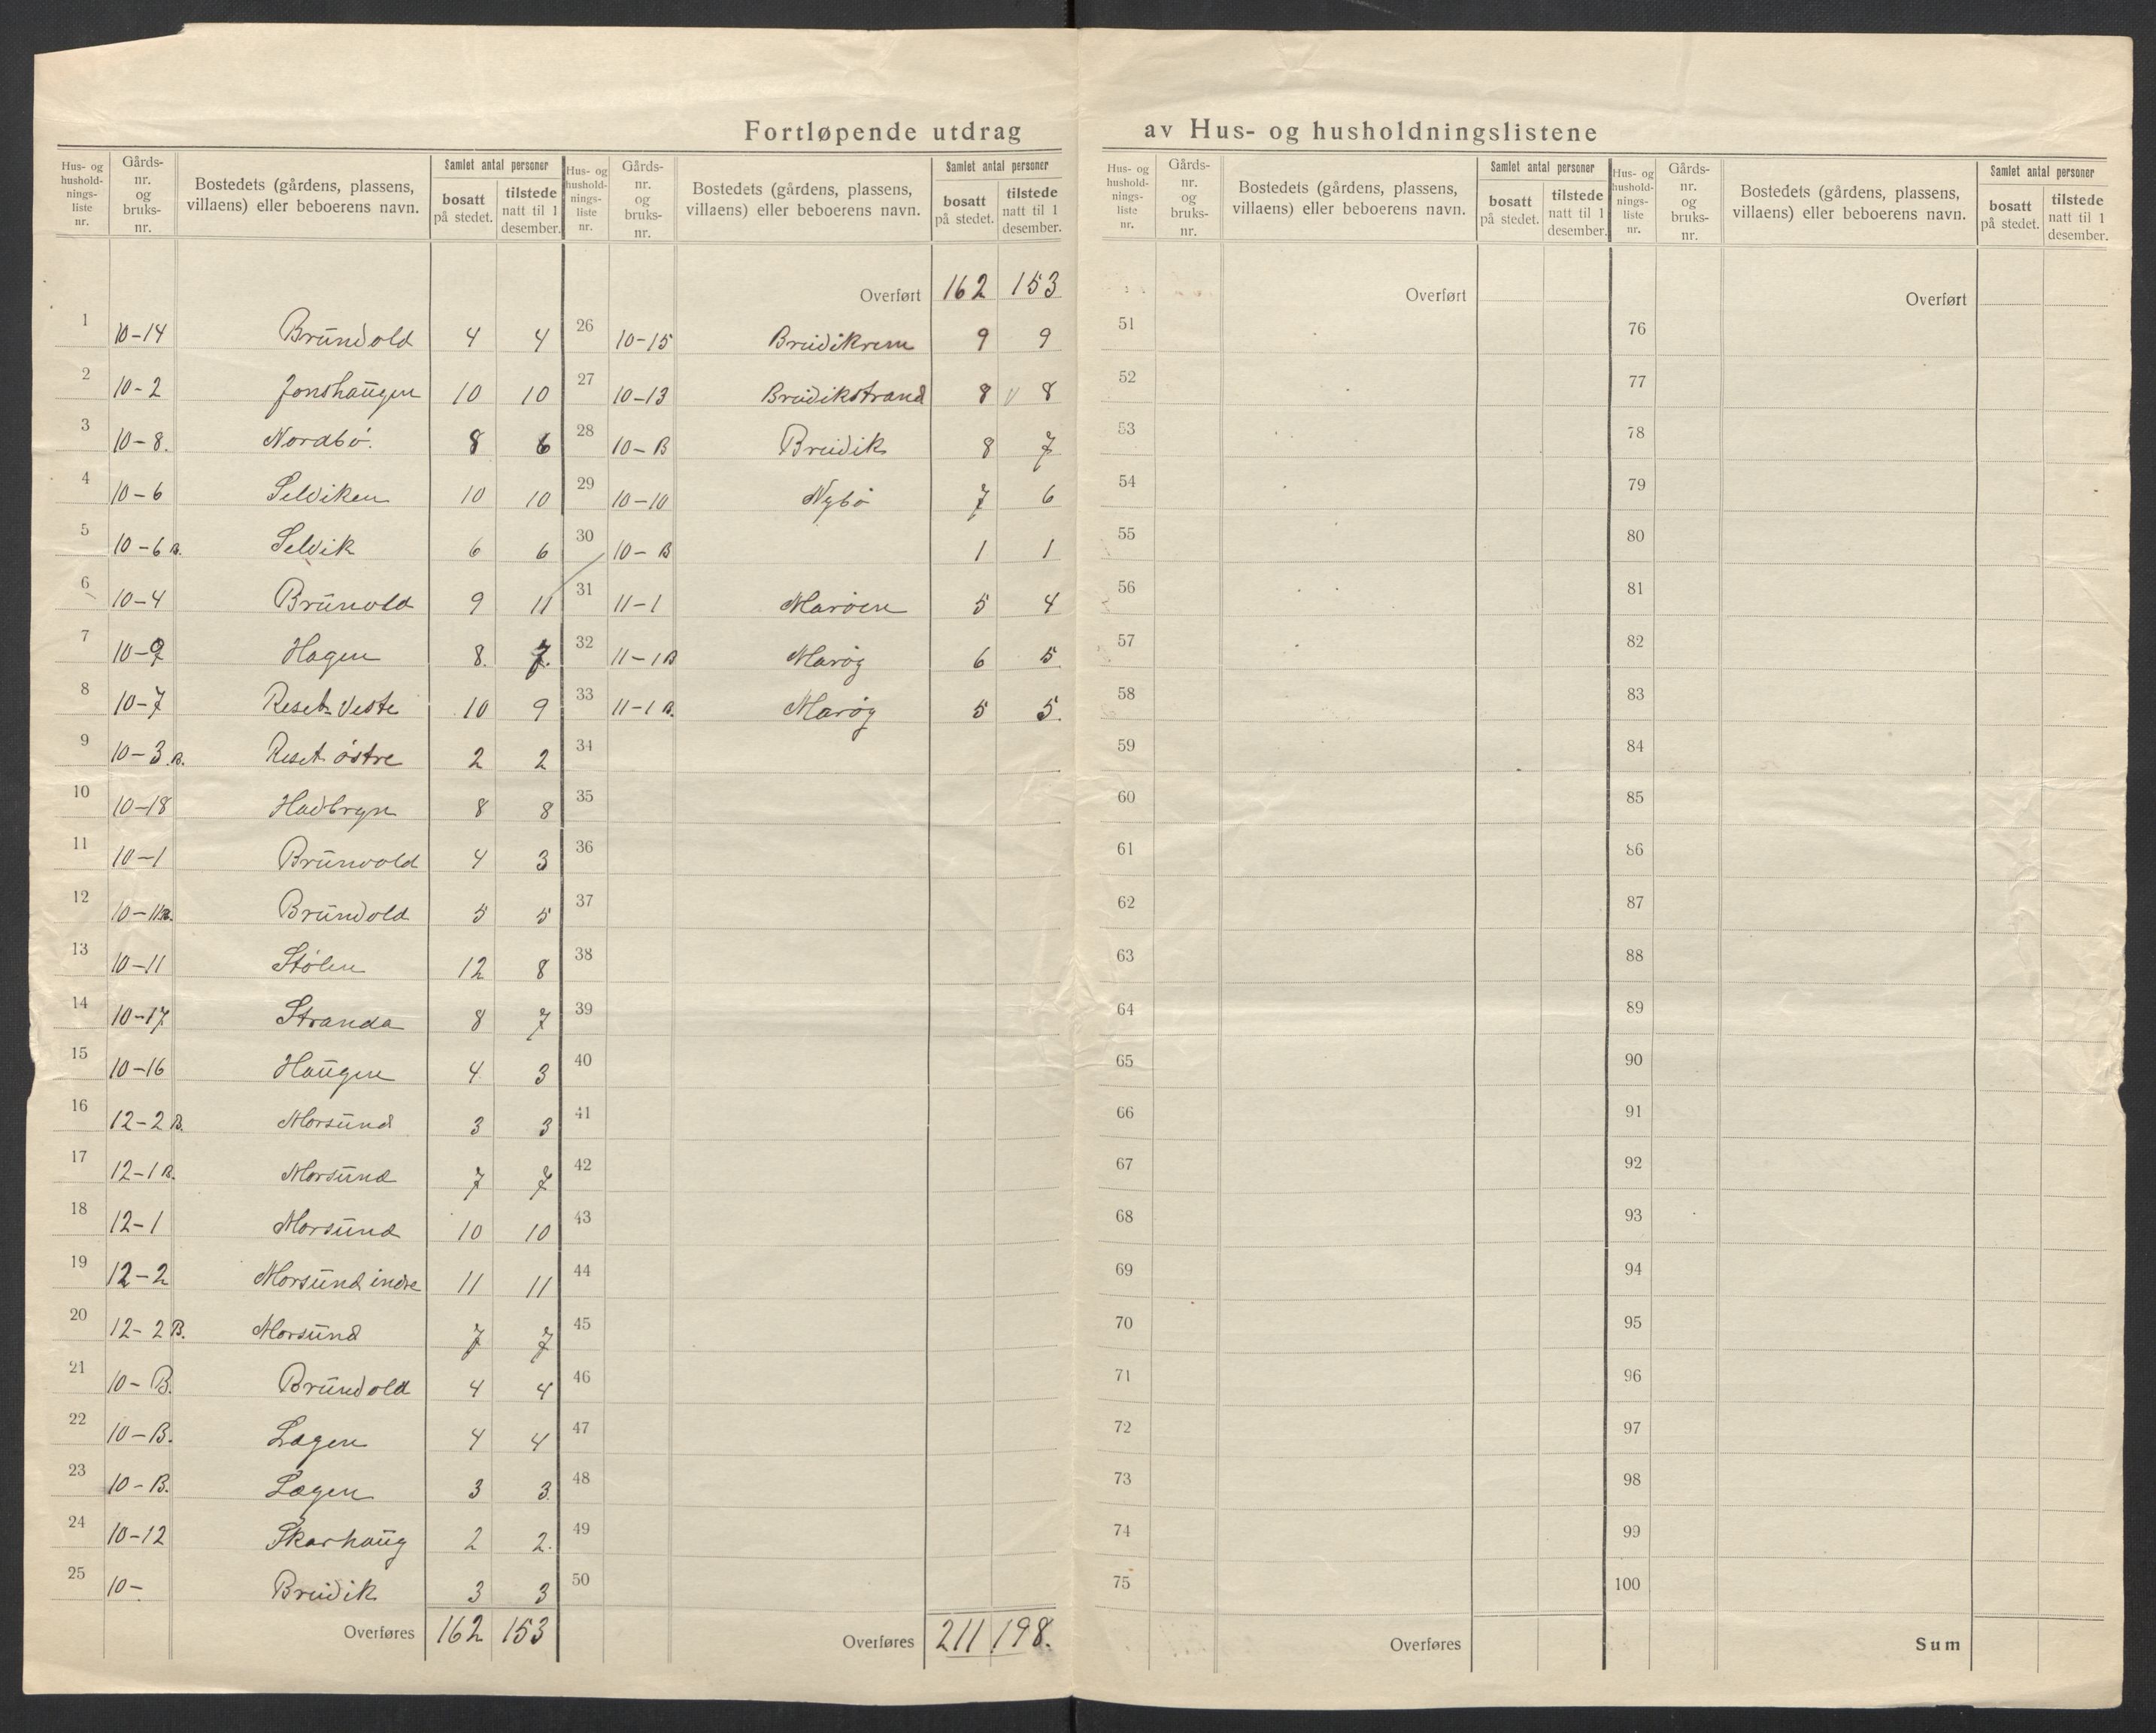 Fortløpende utdrag av Hus- og husholdningslistene
Hus- og husholdnings-liste nr. | Gårds-nr. og bruks-nr. | Bostedets (gårdens, plassens, villaens) eller beboerens navn. | Samlet antal personer | bosatt på stedet. | tilstede natt til 1 desember.
1 10-14 Brünvold 4 4
2 10-2 Jonshaŭgen 10 10
3 10-8. Nordbø. 8 6
4 10-6 Selviken 10 10
5 10-6 B. Selvik 6 6
6 10-4 Brŭnvold 9 11
7 10-9 Hagen 8. 7.
8 10-7 Reset Vestre 10 9
9 10-3.B. Reset østre 2 2
10 10-18 Havbryn 8 8
11 10-1 Brŭnvold 4 3
12 10-11B. Brŭnvold 5 5
13 10-11 Stølen 12 8
14 10-17 Stranda 8 7
15 10-16 Haŭgen 4 3
16 12-2 B. Morsŭnd 3 3
17 12-1 B. Morsŭnd 7 7
18 12-1 Morsŭnd 10 10
19 12-2 Morsŭnd indre 11 11
20 12-2 B. Morsŭnd 7 7
21 10-B. Brŭnvold 4 4
22 10-B. Lagen 4 4
23 10-B. Lægen 3 3
24 10-12 Skarhaŭg 2 2.
25 10- Breivik 3 3
Overføres 162 153
Hus- og husholdnings-liste nr. | Gårds-nr. og bruks-nr. | Bostedets (gårdens, plassens, villaens) eller beboerens navn. | Samlet antal personer | bosatt på stedet. | tilstede natt til 1 desember.
Overført 162 153
26 10-15 Breivikrem 9 9
27 10-13 Breivikstrand 8 v 8
28 10-B Breivik 8 7
29 10-10 Nybø 7 6
30 10-B 1 1
31 11-1 Marøen 5 4
32 11-1B Marøy 6 5
33 11-1 B. Marøy 5 5.
34
35
36
37
38
39
40
41
42
43
44
45
46
47
48
49
50
Overføres 211 198.
Hus- og husholdnings-liste nr. | Gårds-nr. og bruks-nr. | Bostedets (gårdens, plassens, villaens) eller beboerens navn. | Samlet antal personer | bosatt på stedet. | tilstede natt til 1 desember.
Overført
51
52
53
54
55
56
57
58
59
60
61
62
63
64
65
66
67
68
69
70
71
72
73
74
75
Overføres
Hus- og husholdnings-liste nr. | Gårds-nr. og bruks-nr. | Bostedets (gårdens, plassens, villaens) eller beboerens navn. | Samlet antal personer | bosatt på stedet. | tilstede natt til 1 desember.
Overført
76
77
78
79
80
81
82
83
84
85
86
87
88
89
90
91
92
93
94
95
96
97
98
99
100
Sum